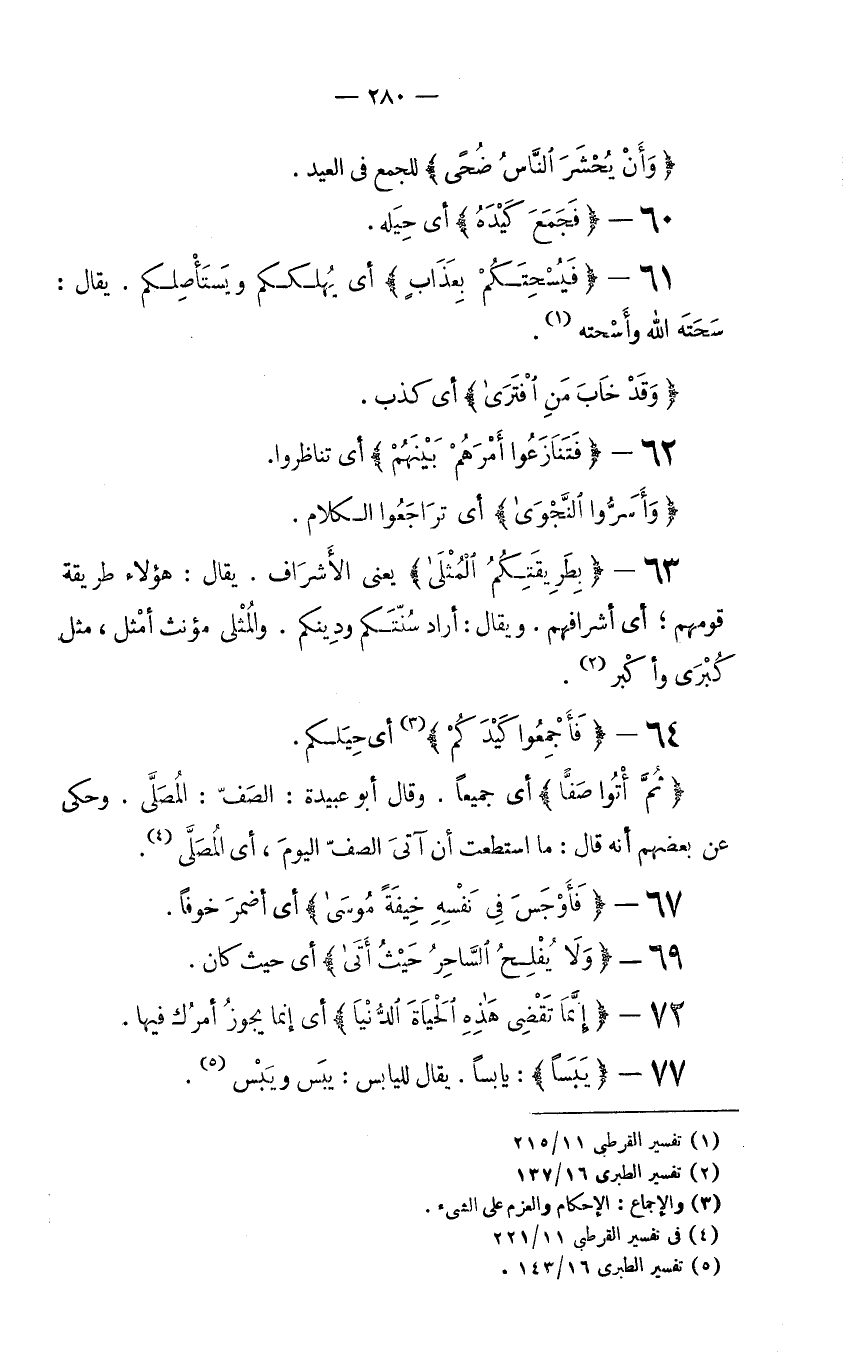 — ٢٨٠ —
﴿ وَأَنْ يُحْشَرَ ٱلنَّاسُ ضُحًى ﴾ للجمع فى العيد .
٦٠ — ﴿ فَجَمَعَ كَيْدَهُ ﴾ أى حِيَله .
٦١ — ﴿ فَيُسْحِتَكُمْ بِعَذَابٍ ﴾ أى يُهلككم ويَستَأْصِلكم . يقال :
سَحَتَه الله وأَسْحته (١) .
﴿ وَقَدْ خَابَ مَنِ ٱفْتَرَىٰ ﴾ أى كذب .
٦٢ — ﴿ فَتَنَازَعُوا أَمْرَهُمْ بَيْنَهُمْ ﴾ أى تناظروا.
﴿ وَأَسَرُّوا ٱلنَّجْوَىٰ ﴾ أى ترَاجَعُوا الكلام .
٦٣ — ﴿ بِطَرِيقَتِكُمُ ٱلْمُثْلَىٰ ﴾ يعنى الأَشرَاف . يقال : هؤلاء طريقة
قومهم ؛ أى أشرافهم . ويقال : أراد سُنّتَكم ودِينكم . والمُثْلى مؤنث أمْثل ، مثل
كُبْرَى وأكْبر (٢) .
٦٤ — ﴿ فَأَجْمِعُوا كَيْدَكُمْ ﴾(٣) أى حِيَلكم .
﴿ ثُمَّ أْتُوا صَفًّا ﴾ أى جميعاً . وقال أبو عبيدة : الصَفّ : المُصَلَّى . وحكى
عن بعضهم أنه قال : ما استطعت أن آتىَ الصفّ اليومَ ، أى المُصَلَّى (٤).
٦٧ — ﴿ فَأَوْجَسَ فِى نَفْسِهِ خِيفَةً مُوسَىٰ ﴾ أى أضمرَ خوفاً .
٦٩ — ﴿ وَلَا يُفْلِحُ ٱلسَّاحِرُ حَيْثُ أَتَىٰ ﴾ أى حيث كان .
٧٢ — ﴿ إِنَّمَا تَقْضِى هَٰذِهِ ٱلْحَيَاةَ ٱلدُّنْيَا ﴾ أى إنما يجوزُ أمرُك فيها .
٧٧ — ﴿ يَبَسًا ﴾ : يابساً . يقال لليابس : يبَس ويَبْس (٥) .
(١) تفسير القرطبى ٢١٥/١١
(٢) تفسير الطبرى ١٣٧/١٦
(٣) والإجماع : الإحكام والعزم على الشىء .
(٤) فى تفسير القرطبى ٢٢١/١١
(٥) تفسير الطبرى ١٤٣/١٦ .